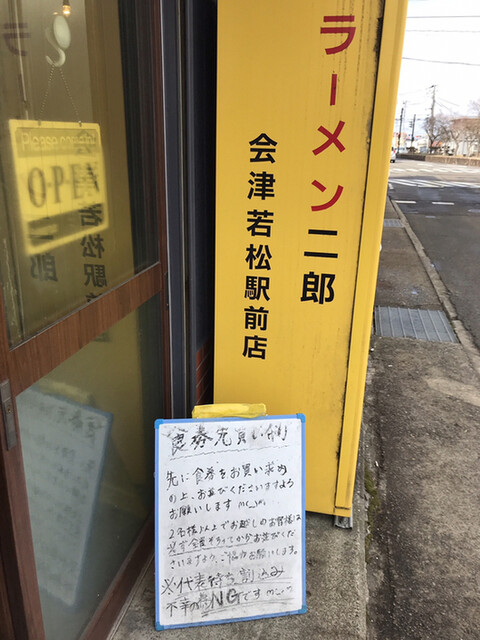 ラーメン二郎
会津若松駅前店
OPEN
食券先買い制
先に食券をお買い求め
の上、お並びくださいますよう
お願いします m(_ _)m
2名様以上でお越しのお客様は
必ず全員そろってからお並びくだ
さいますよう、ご協力お願いします。
※代表待ち 割込み
NGです m(_ _)m